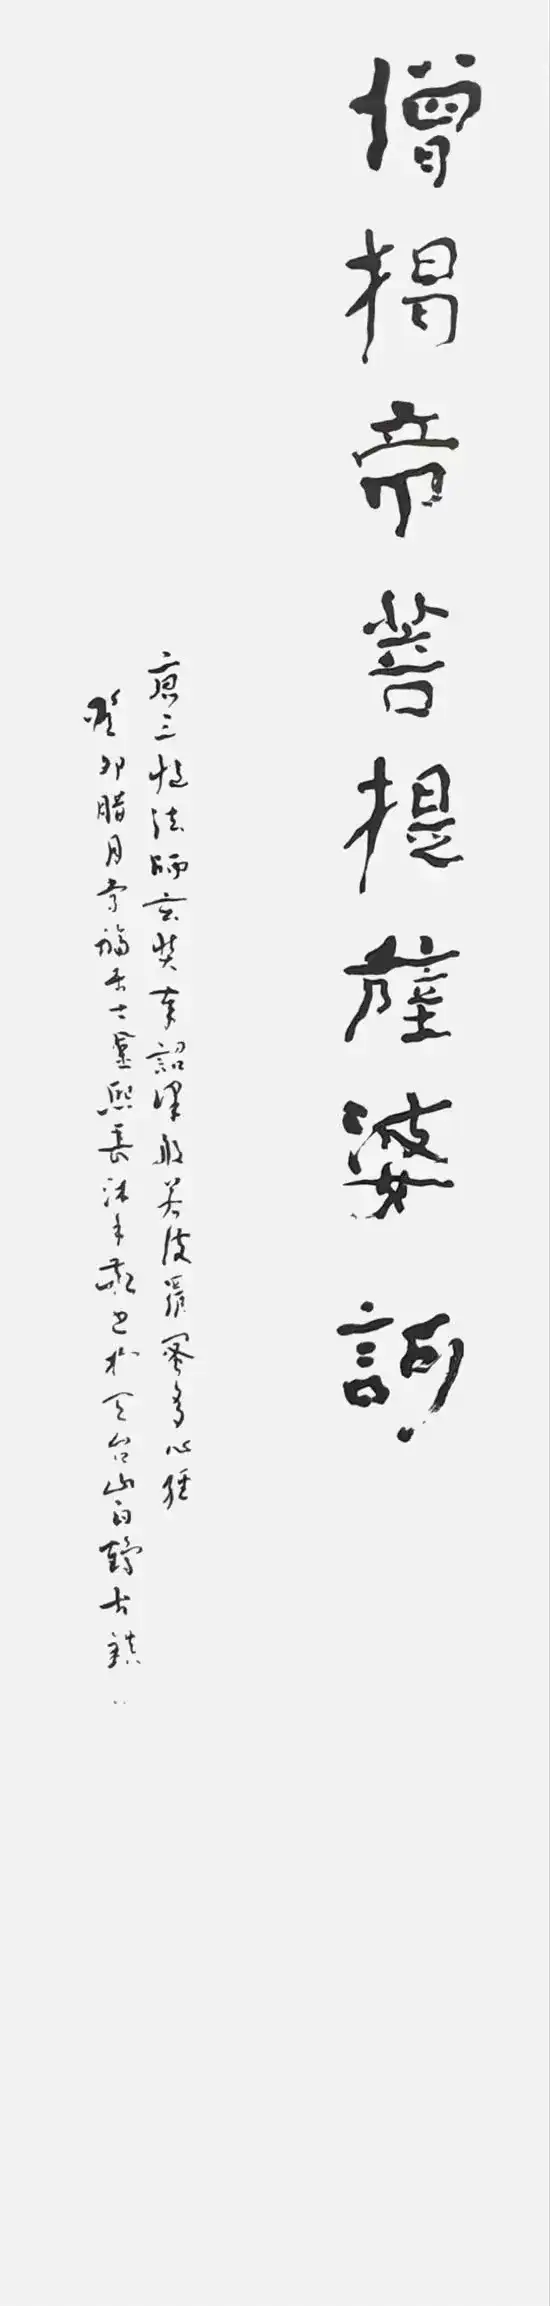 僧揭帝菩提薩婆訶
唐三藏法師玄奘奉詔譯般若波羅蜜多心經
癸卯腊月 福居士 熙長沐手敬書於天台山白鶴古鎮